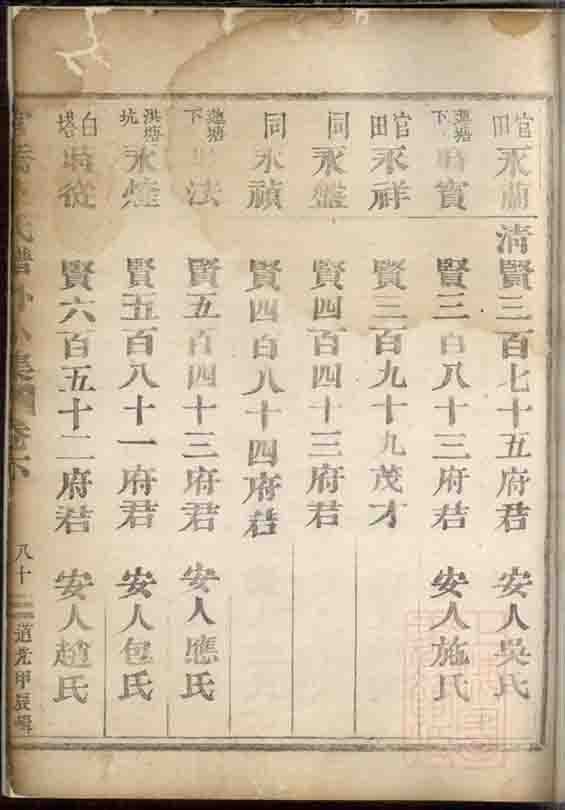 官田 永蘭 清賢三百七十五府君 安人吳氏
蓮塘下 時寶 賢三百八十三府君 安人施氏
官田 永祥 賢三百九十九茂才
同 永盤 賢四百四十三府君
同 永禎 賢四百八十四府君
蓮塘下 法 賢五百四十三府君 安人應氏
洪塘坑 永煃 賢五百八十一府君 安人包氏
白塔 時從 賢六百五十二府君 安人趙氏
氏譜 卷下 八十 道光甲辰輯